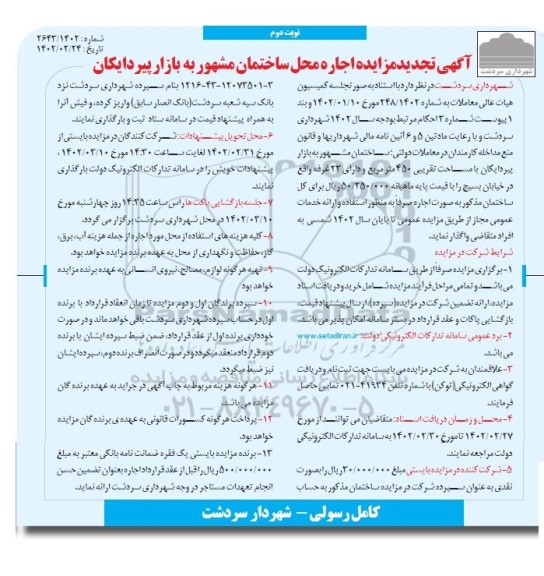 نوبت دوم
شماره: ۲۶۴۳/۱۴۰۲
تاریخ: ۱۴۰۲/۰۲/۲۴
شهرداری سردشت
آگهی تجدید مزایده اجاره محل ساختمان مشهور به بازار پیردایکان
شهرداری سردشت در نظر دارد با استناد به صورتجلسه کمیسیون
هیات عالی معاملات به شماره ۲۴۸/۱۴۰۲ مورخ ۱۴۰۲/۰۱/۱۰ و بند
۱ پیوست شماره ۳ احکام مرتبط بودجه سال ۱۴۰۲ شهرداری
سردشت و با رعایت مادتین ۵ و ۶ آئین نامه مالی شهرداریها و قانون
منع مداخله کارمندان در معاملات دولتی؛ ساختمان مشهور به بازار
پیردایکان با مساحت تقریبی ۴۵۰ مترمربع و دارای ۲۳ غرفه واقع
در خیابان بسیج را با قیمت پایه ماهیانه ۵۰/۳۵۰/۰۰۰ ریال برای کل
ساختمان مذکور به صورت اجاره صرفا به منظور استفاده و ارائه خدمات
عمومی مجاز از طریق مزایده عمومی تا پایان سال ۱۴۰۲ شمسی به
افراد متقاضی واگذار نماید.
شرایط شرکت در مزایده
۱- برگزاری مزایده صرفاً از طریق سامانه تدارکات الکترونیک دولت
می باشد و تمامی مراحل فرآیند مزایده شامل خرید و دریافت اسناد
مزایده، ارائه تضمین شرکت در مزایده (سپرده)، ارسال پیشنهاد قیمت،
بازگشایی پاکات و عقد قرارداد در بستر سامانه امکان پذیر می باشد.
۲- برد عمومی سامانه تدارکات الکترونیکی دولت: www.setadiran.ir
می باشد.
۳- علاقمندان به شرکت در مزایده می بایست جهت ثبت نام و دریافت
گواهی الکترونیکی (توکن) با شماره تلفن ۴۱۹۳۴-۰۲۱ تماس حاصل
فرمایند.
۴- محل و زمان دریافت اسناد: متقاضیان می توانند از مورخ
۱۴۰۲/۰۲/۲۷ تا مورخ ۱۴۰۲/۰۲/۳۰ به سامانه تدارکات الکترونیکی
دولت مراجعه نمایند.
۵- شرکت کننده در مزایده بایستی مبلغ ۳۰/۰۰۰/۰۰۰ ریال را بصورت
نقدی به عنوان سپرده شرکت در مزایده ساختمان مذکور به حساب
۱۲۱۶-۴۳-۱۲۰۷۳۵۰۱-۳ بنام سپرده شهرداری سردشت نزد
بانک سپه شعبه سردشت (بانک انصار سابق) واریز کرده، و فیش آنرا
به همراه پیشنهاد قیمت در سامانه ستاد ثبت و بارگذاری نمایند.
۶- محل تحویل پیشنهادات: شرکت کنندگان در مزایده بایستی از
مورخ ۱۴۰۲/۰۲/۳۱ لغایت ساعت ۱۴:۳۰ مورخ ۱۴۰۲/۰۳/۱۰ ؛
پیشنهادات خویش را در سامانه تدارکات الکترونیک دولت بارگذاری
نمایند.
۷- جلسه بازگشایی پاکت ها راس ساعت ۱۴:۳۵ روز چهارشنبه مورخ
۱۴۰۲/۰۳/۱۰ در محل شهرداری سردشت برگزار می گردد.
۸- کلیه هزینه های استفاده از محل مورد اجاره از جمله هزینه آب، برق،
گاز، حفاظت و نگهداری از محل به عهده برنده مزایده خواهد بود.
۹- تهیه هرگونه لوازم، مصالح، نیروی انسانی به عهده برنده مزایده
خواهد بود
۱۰- سپرده برندگان اول و دوم مزایده تا زمان انعقاد قرارداد با برنده
اول در حساب سپرده شهرداری سردشت باقی خواهد ماند و در صورت
خودداری برنده اول از عقد قرارداد، ضمن ضبط سپرده ایشان با برنده
دوم قرارداد منعقد میگردد و در صورت انصراف برنده دوم، سپرده ایشان
نیز ضبط میگردد.
۱۱- هرگونه هزینه مربوط به چاپ آگهی در جراید به عهده برنده گان
مزایده می باشد.
۱۲- پرداخت هرگونه کسورات قانونی به عهده ی برنده گان مزایده
خواهد بود.
۱۳- برنده مزایده بایستی یک فقره ضمانت نامه بانکی معتبر به مبلغ
۵۰۰/۰۰۰/۰۰۰ ریال را قبل از عقد قرارداد اجاره بعنوان تضمین حسن
انجام تعهدات مستاجر در وجه شهرداری سردشت ارائه نماید.
کامل رسولی - شهردار سردشت
۰۲۱-۸۸۳۴۹۶۷۰-۵